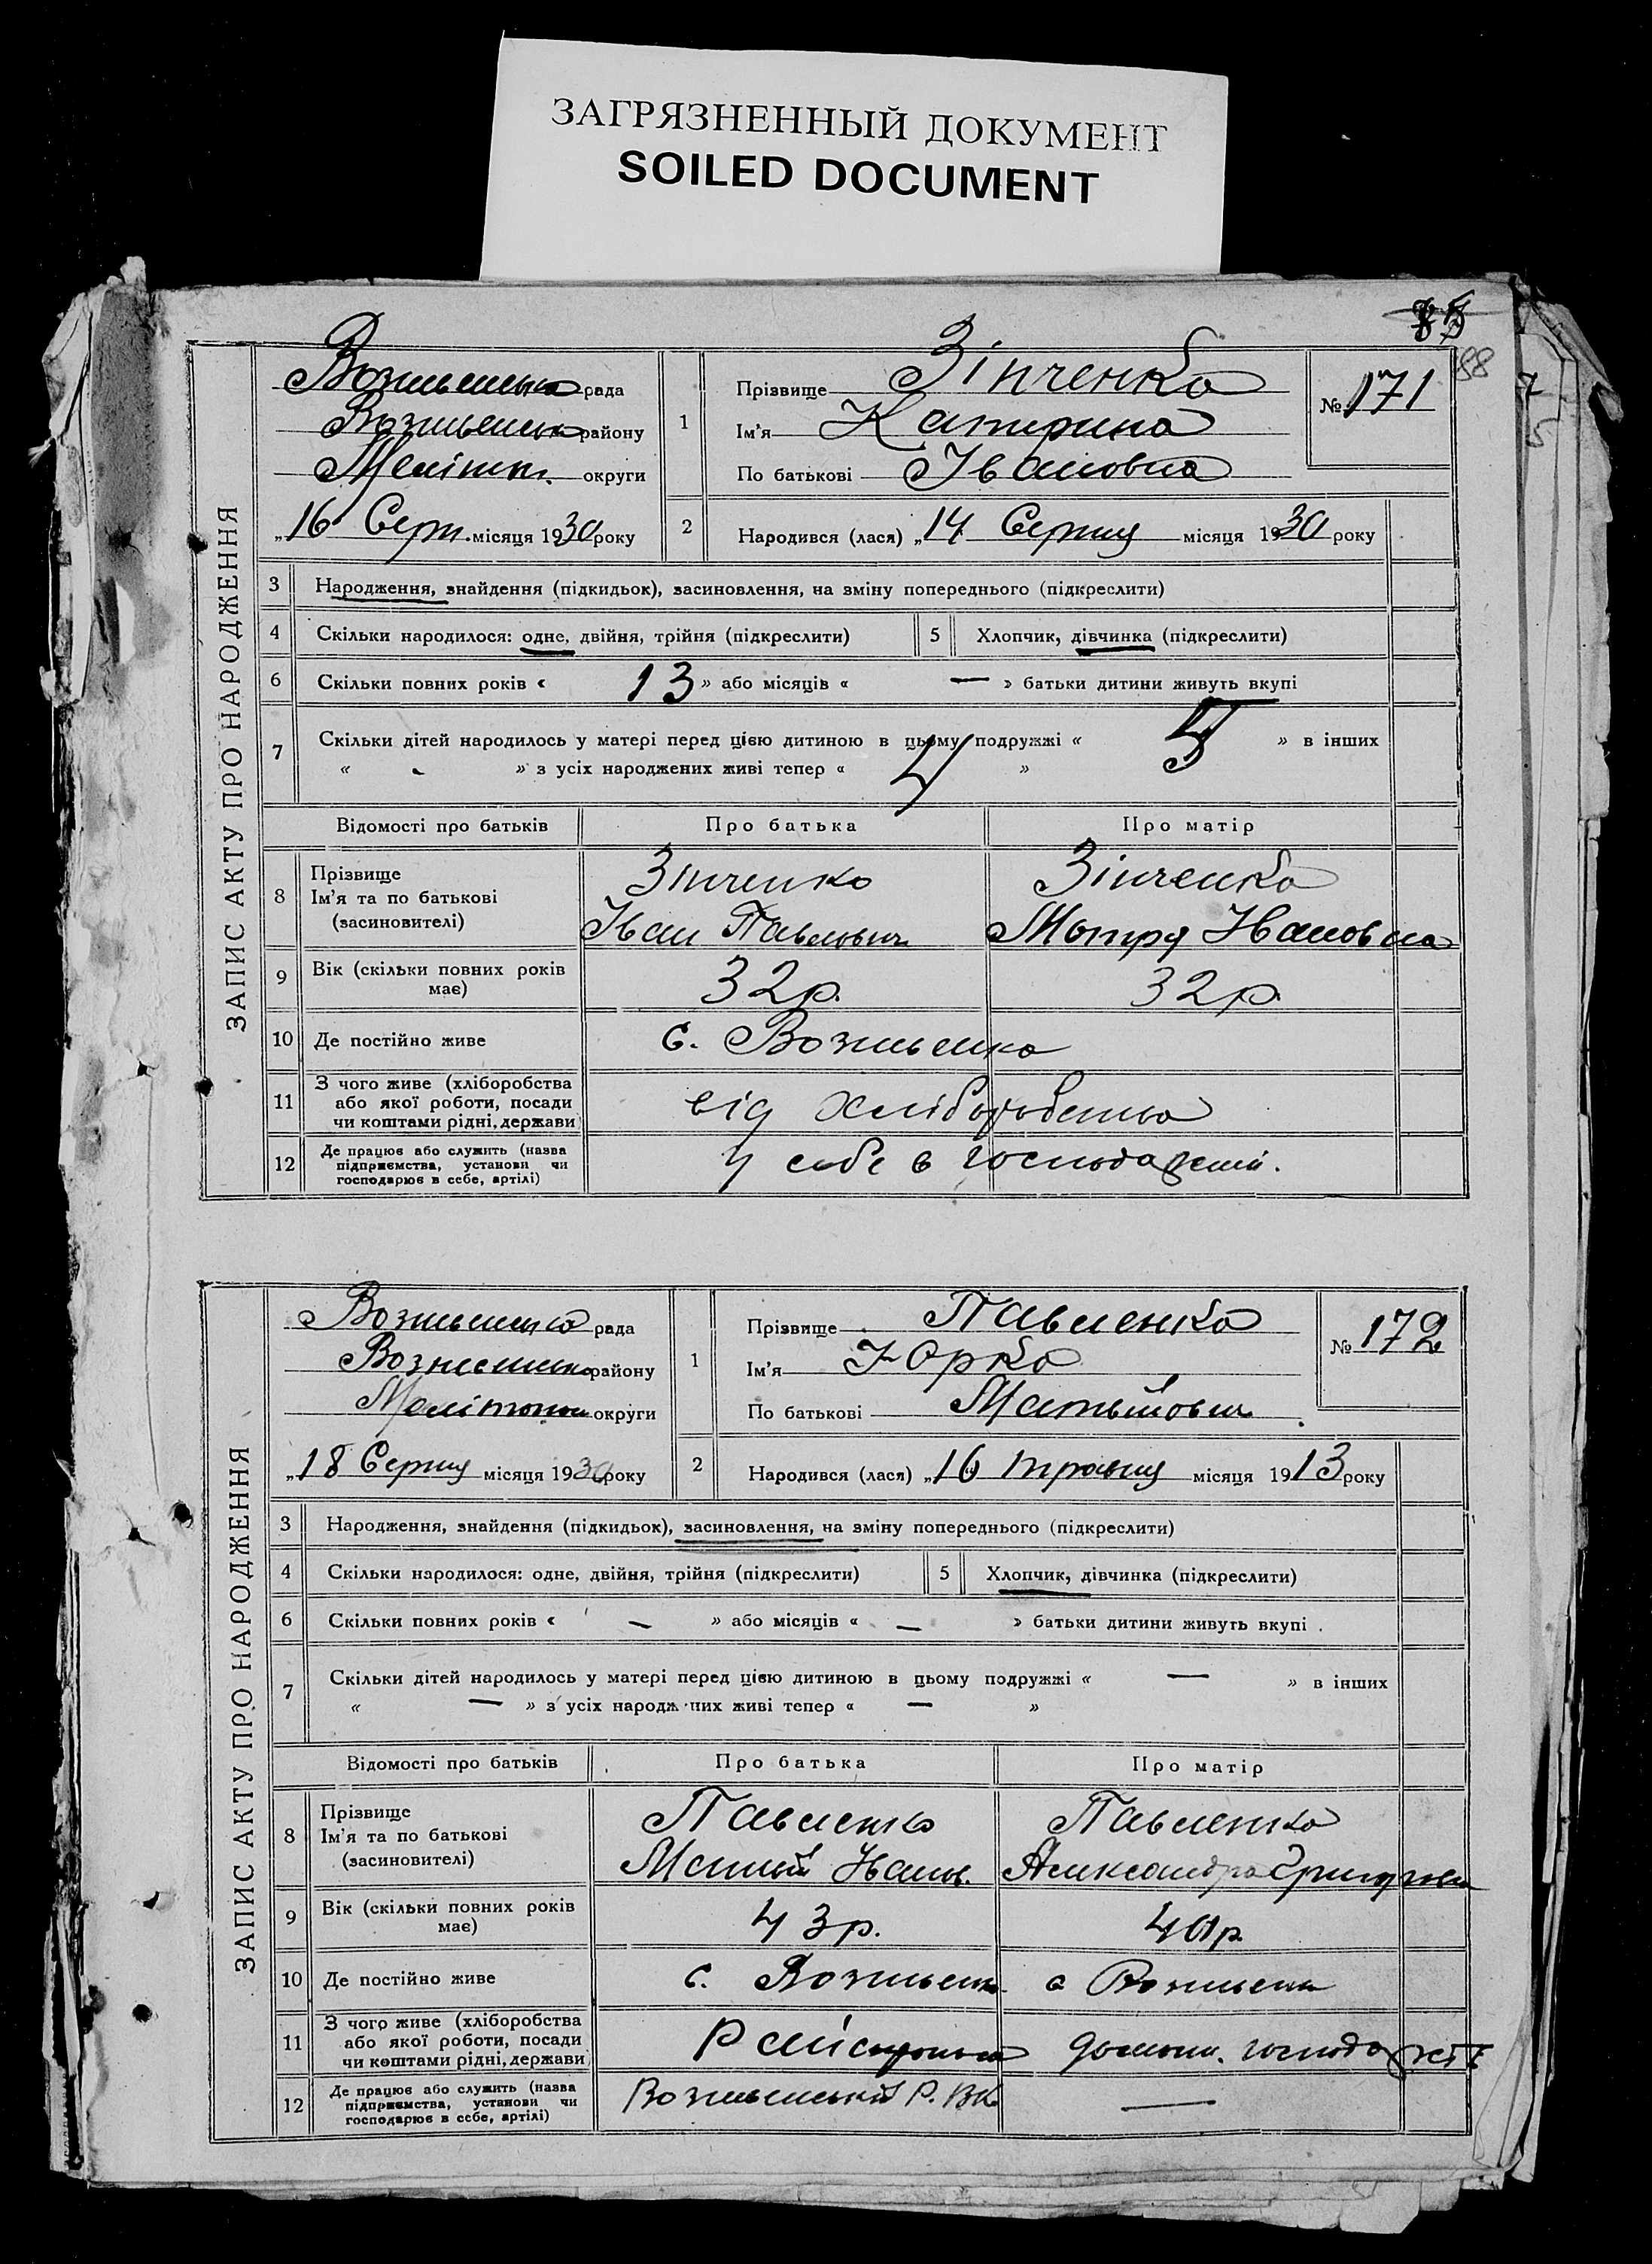 ЗАГРЯЗНЕННЫЙ ДОКУМЕНТ
SOILED DOCUMENT
88
ЗАПИС АКТУ ПРО НАРОДЖЕННЯ
рада
району
Меліт. округи
„16 Серп. місяця 1930 року
1
Прізвище Зінченко
Ім'я Катерина
По батькові Івановна
№ 171
2 Народився (лася) „14 Серпня місяця 1930 року
3 Народження, знайдення (підкидьок), засиновлення, на зміну попереднього (підкреслити)
4 Скільки народилося: одне, двійня, трійня (підкреслити) 5 Хлопчик, дівчинка (підкреслити)
6 Скільки повних років « 13 » або місяців « — » батьки дитини живуть вкупі
7 Скільки дітей народилось у матері перед цією дитиною в цьому подружжі « 5 » в інших
« - » з усіх народжених живі тепер « 4 »
Відомості про батьків Про батька Про матір
8 Прізвище
Ім'я та по батькові
(засиновителі)
Зінченко
Іван Павлович
Зінченко
Мотря Івановна
9 Вік (скільки повних років має) 32 р. 32 р.
10 Де постійно живе с. Вознесенка
11 З чого живе (хліборобства
або якої роботи, посади
чи коштами рідні, держави
від хліборобства
12 Де працює або служить (назва
підприємства, установи чи
господарює в себе, артілі)
у себе в господарстві.
ЗАПИС АКТУ ПРО НАРОДЖЕННЯ
рада
району
округи
„18 Серпня місяця 1930 року
1
Прізвище Павленко
Ім'я Юрко
По батькові Матвійович
№ 172
2 Народився (лася) „16 травня місяця 1913 року
3 Народження, знайдення (підкидьок), засиновлення, на зміну попереднього (підкреслити)
4 Скільки народилося: одне, двійня, трійня (підкреслити) 5 Хлопчик, дівчинка (підкреслити)
6 Скільки повних років « — » або місяців « — » батьки дитини живуть вкупі
7 Скільки дітей народилось у матері перед цією дитиною в цьому подружжі « — » в інших
« — » з усіх народжених живі тепер « — »
Відомості про батьків Про батька Про матір
8 Прізвище
Ім'я та по батькові
(засиновителі)
Павленко
Матвій Іванов.
Павленко
Александра
9 Вік (скільки повних років має) 43 р. 40 р.
10 Де постійно живе с. Вознесенк с Вознесенк
11 З чого живе (хліборобства
або якої роботи, посади
чи коштами рідні, держави
домашн. господарств
12 Де працює або служить (назва
підприємства, установи чи
господарює в себе, артілі)
Вознесенський Р.В.К. —